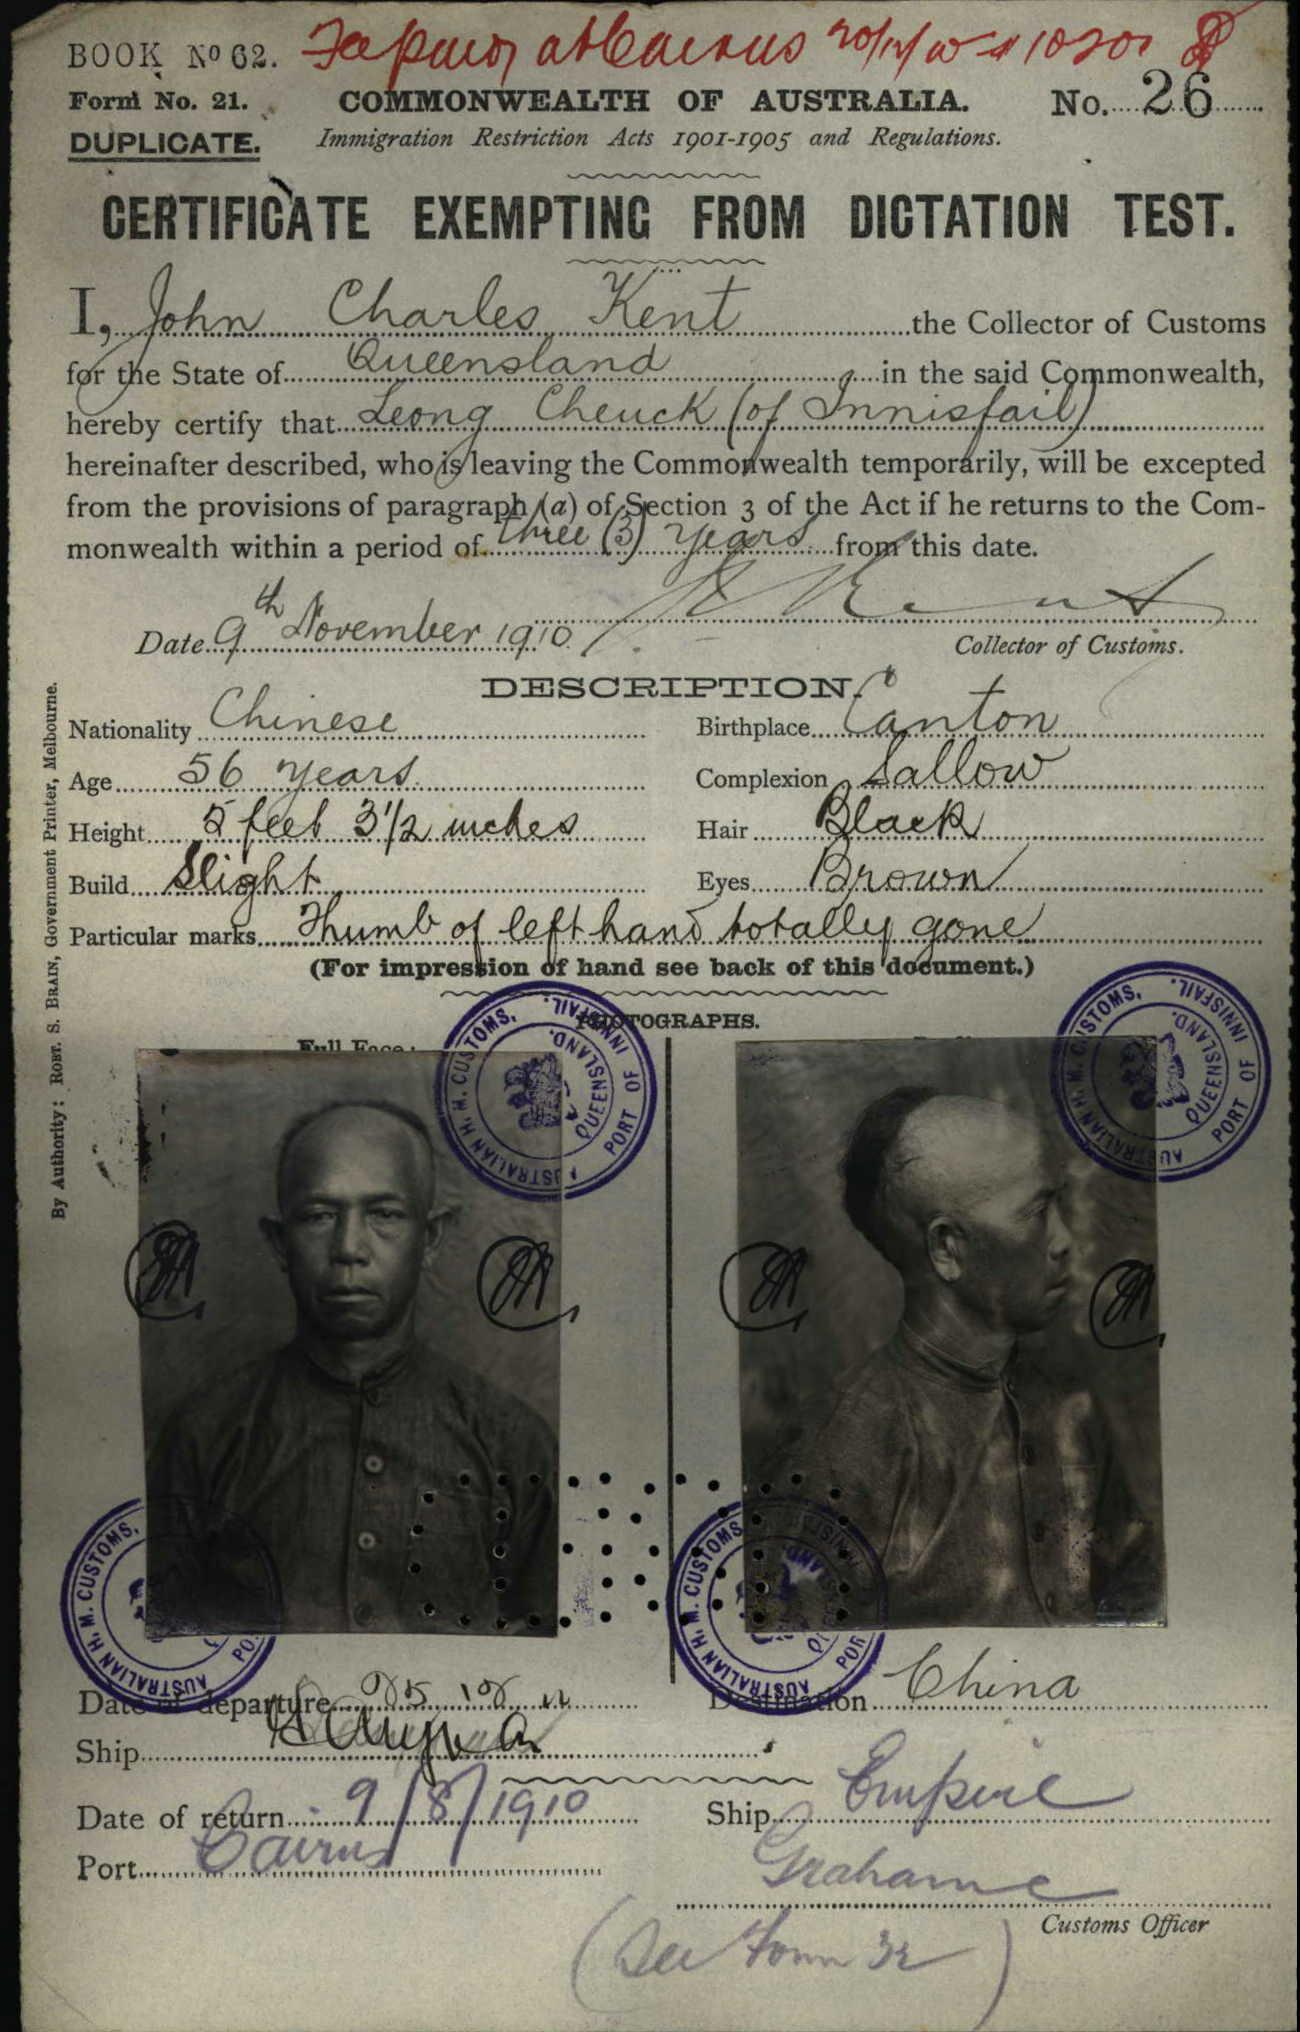 BOOK No 62.
Form No. 21. COMMONWEALTH OF AUSTRALIA. No. 26
DUPLICATE. Immigration Restriction Acts 1901-1905 and Regulations.
CERTIFICATE EXEMPTING FROM DICTATION TEST.
I, John Charles Kent the Collector of Customs
for the State of Queensland in the said Commonwealth,
hereby certify that Leong Cheuck (of Innisfail)
hereinafter described, who is leaving the Commonwealth temporarily, will be excepted
from the provisions of paragraph (a) of Section 3 of the Act if he returns to the Com-
monwealth within a period of three (3) years from this date.
Date 9th November 1910. Collector of Customs.
DESCRIPTION.
Nationality Chinese Birthplace Canton
Age 56 years. Complexion Sallow
Height 5 feet 3 1/2 inches Hair Black
Build Slight Eyes Brown
Particular marks Thumb of left hand totally gone
(For impression of hand see back of this document.)
PHOTOGRAPHS.
Full Face:
AUSTRALIAN H. M. CUSTOMS, PORT OF INNISFAIL. QUEENSLAND.
AUSTRALIAN H. M. CUSTOMS, PORT OF INNISFAIL. QUEENSLAND.
By Authority: ROBT. S. BRAIN, Government Printer, Melbourne.
AUSTRALIAN H. M. CUSTOMS,
AUSTRALIAN H. M. CUSTOMS,
Date of departure Destination China
Ship
Date of return 9/8/1910 Ship Empire
Port Cairns Grahame
Customs Officer
(See Form 32)